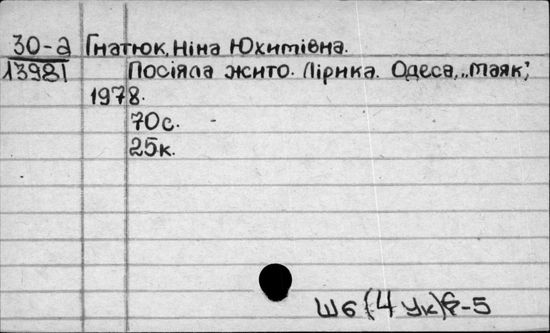 30-а Гнатюк, Ніна Юхимівна.
13981 Посіяла жито. Лірика. Одеса, „Маяк",
1978.
70с.
25к.
Ш6(4Ук)6-5